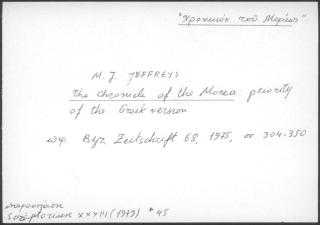 "Χρονικὸν τοῦ Μορέως"
M. J. JEFFREYS
The Chronicle of the Morea: priority
of the Greek version
Byz. Zeitschrift 68, 1975, σσ. 304-350
παρουσίαση
XXXIII (1979) * 45